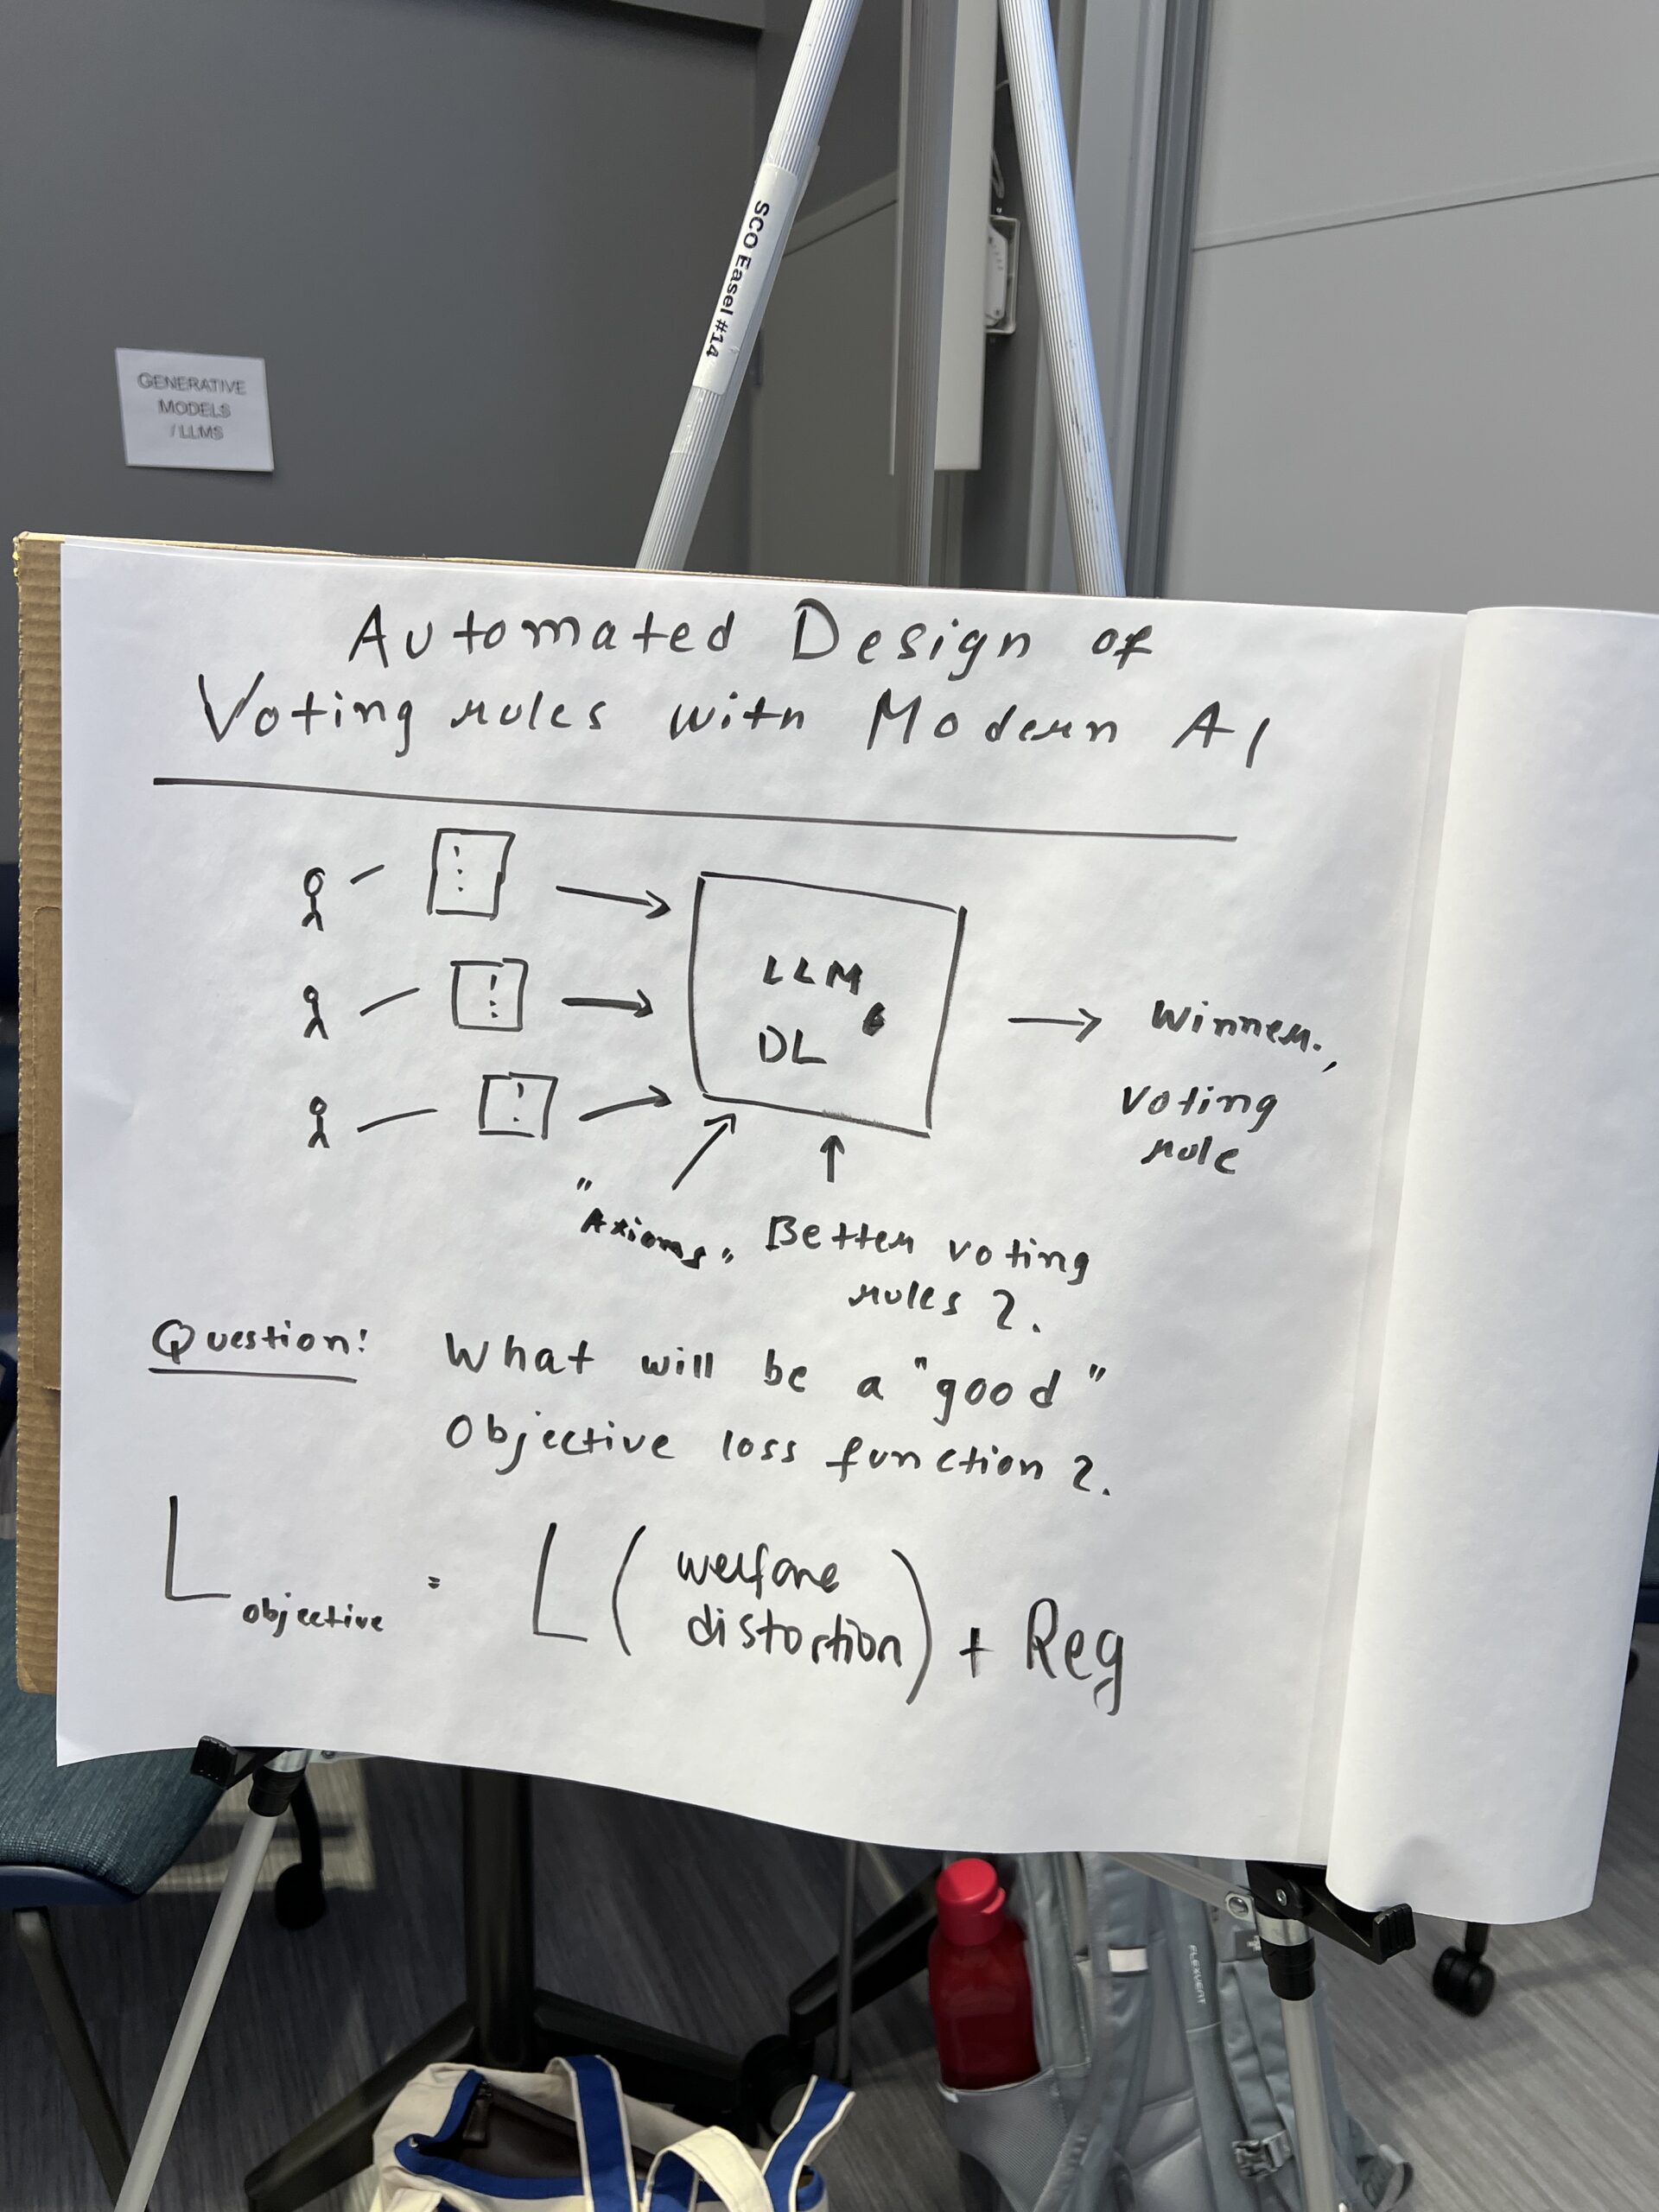 SCO Easel #14
GENERATIVE
MODELS
/ LLMS
Automated Design of
Voting rules with Modern AI
LLM
DL
Winner,
Voting
rule
"Axioms"
Better voting
rules?
Question: What will be a "good"
Objective loss function?
L objective = L ( welfare distortion ) + Reg
FLEXVENT